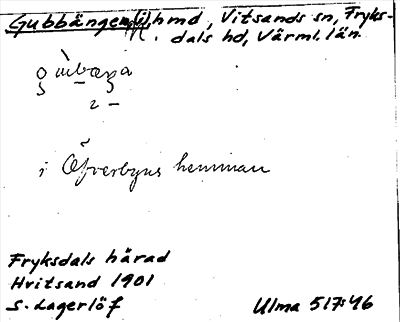 Gubbängen, hmd, Vitsands sn, Fryks-
dals hd, Värml. län.
2 –
i Öfverbyns hemman
Fryksdals härad
Hvitsand 1901
S. Lagerlöf
Ulma 517:46